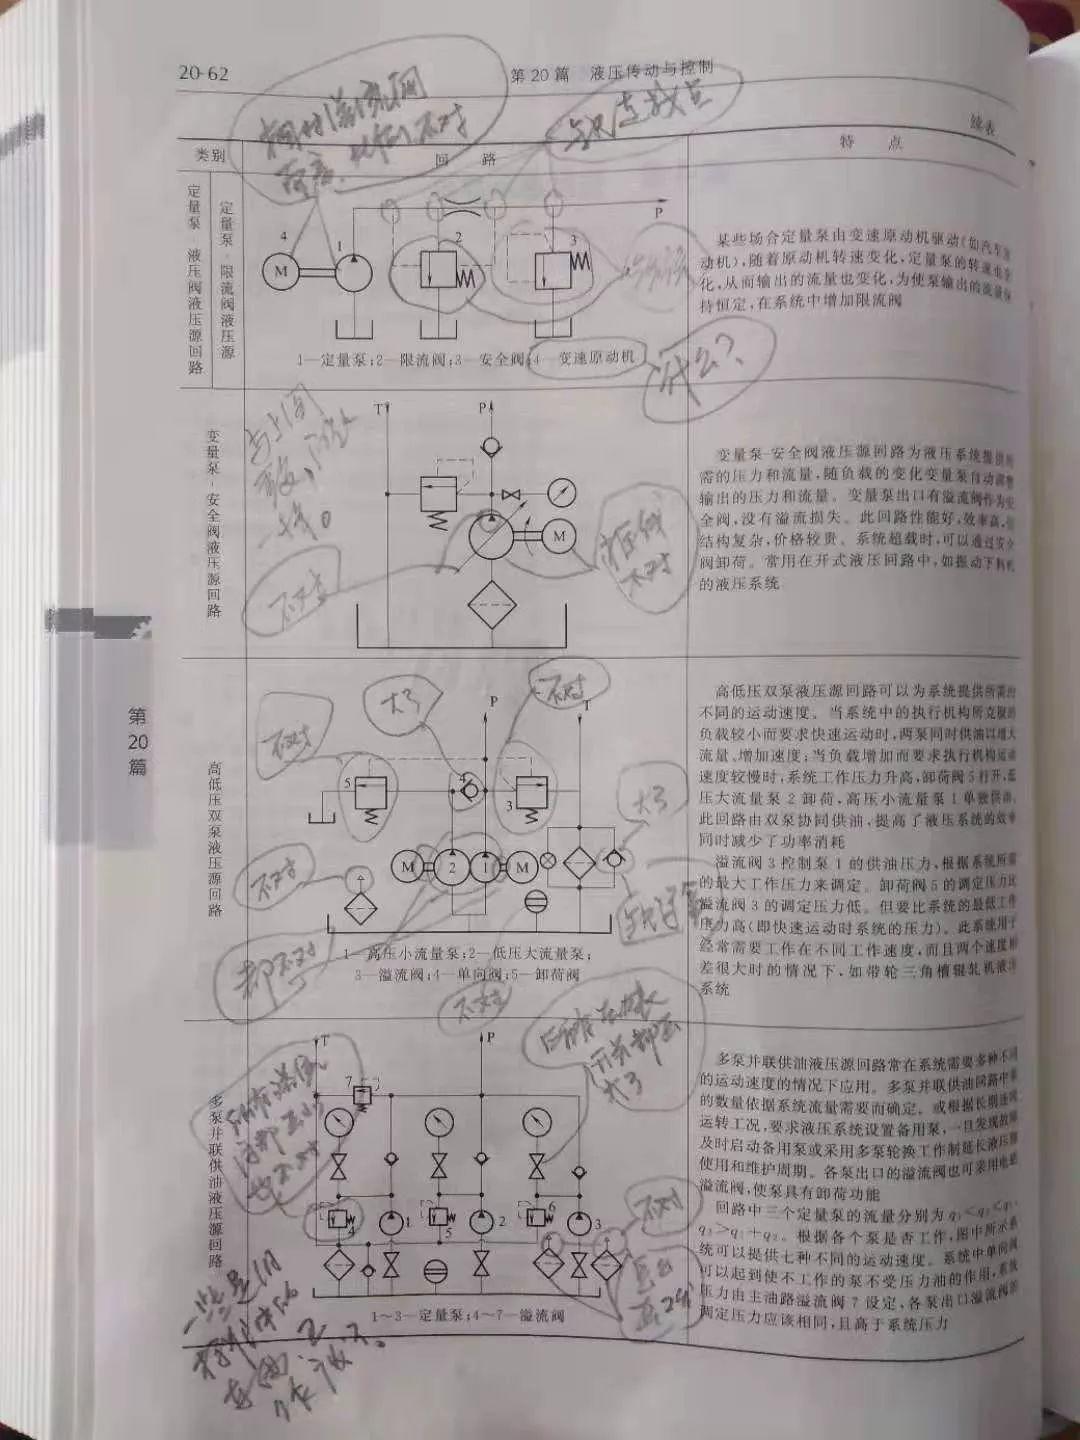 20-62
第20篇 液压传动与控制
续表
类别
回 路
特 点
定量泵-液压阀液压源回路
定量泵-限流阀液压源
4
M
1
2
3
P
1—定量泵;2—限流阀;3—安全阀;4—变速原动机
某些场合定量泵由变速原动机驱动(如汽车
动机),随着原动机转速变化,定量泵的转速也
化,从而输出的流量也变化,为使泵输出的流量
持恒定,在系统中增加限流阀
缺连接点
什么?
变量泵-安全阀液压源回路
T
P
M
一样。
不对
不对
变量泵-安全阀液压源回路为液压系统提供
需的压力和流量,随负载的变化变量泵自动调整
输出的压力和流量。变量泵出口有溢流阀作为安
全阀,没有溢流损失。此回路性能好,效率高,
结构复杂,价格较贵。系统超载时,可以通过安全
阀卸荷。常用在开式液压回路中,如振动下料机
的液压系统
高低压双泵液压源回路
不对
大了
不对
P
T
5
4
3
大了
M
2
1
M
不对
都不对
1—高压小流量泵;2—低压大流量泵;
3—溢流阀;4—单向阀;5—卸荷阀
不对
高低压双泵液压源回路可以为系统提供所需的
不同的运动速度。当系统中的执行机构所克服的
负载较小而要求快速运动时,两泵同时供油以增大
流量、增加速度;当负载增加而要求执行机构运动
速度较慢时,系统工作压力升高,卸荷阀5打开,低
压大流量泵2卸荷,高压小流量泵1单独供油。
此回路由双泵协同供油,提高了液压系统的效率
同时减少了功率消耗
溢流阀3控制泵1的供油压力,根据系统所需
的最大工作压力来调定。卸荷阀5的调定压力比
溢流阀3的调定压力低。但要比系统的最低工作
压力高(即快速运动时系统的压力)。此系统用于
经常需要工作在不同工作速度,而且两个速度相
差很大时的情况下,如带轮三角槽辊轧机液压
系统
第20篇
多泵并联供油液压源回路
T
P
7
大了
4
1
5
2
6
3
不对
1~3—定量泵;4~7—溢流阀
多泵并联供油液压源回路常在系统需要多种不同
的运动速度的情况下应用。多泵并联供油回路中泵
的数量依据系统流量需要而确定。或根据长期连续
运转工况,要求液压系统设置备用泵,一旦发现故障
及时启动备用泵或采用多泵轮换工作制延长液压源
使用和维护周期。各泵出口的溢流阀也可采用电磁
溢流阀,使泵具有卸荷功能
回路中三个定量泵的流量分别为 q₁<q₂<q₃,
q₃>q₁+q₂。根据各个泵是否工作,图中所示系
统可以提供七种不同的运动速度。系统中单向阀
可以起到使不工作的泵不受压力油的作用,系统
压力由主油路溢流阀7设定,各泵出口溢流阀的
调定压力应该相同,且高于系统压力